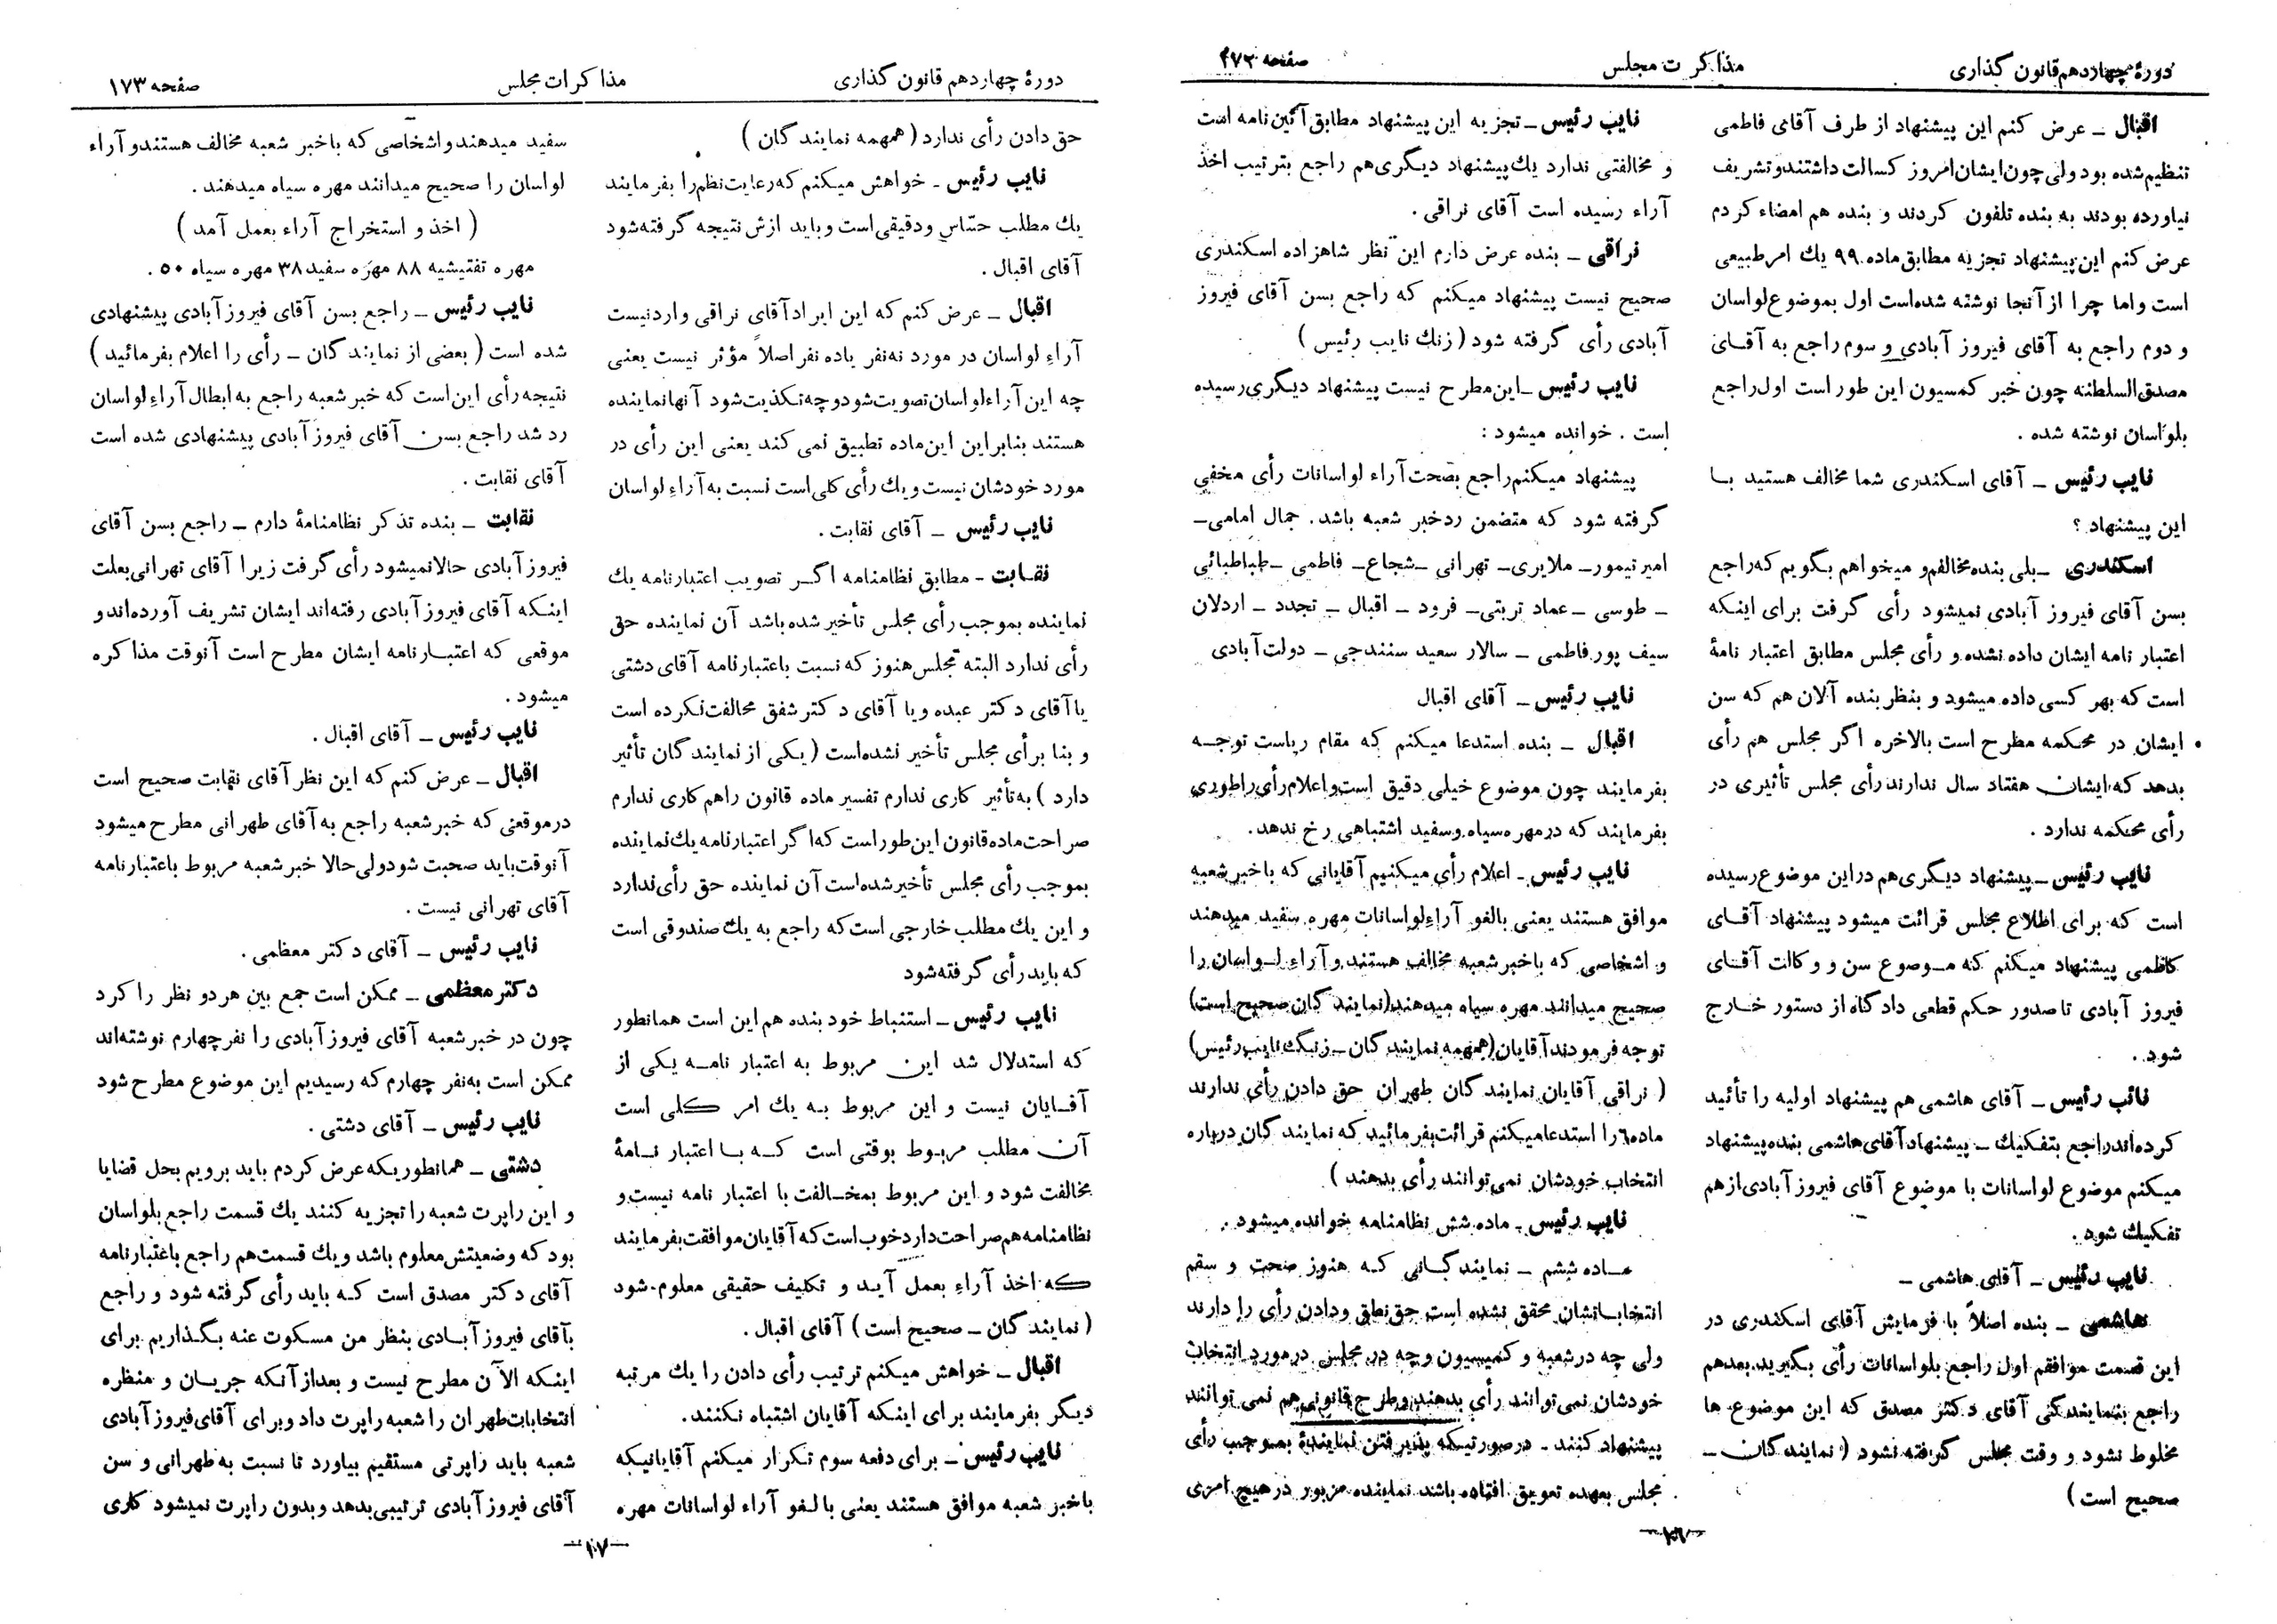 دورهٔ چهاردهم قانون گذاری
مذاکرات مجلس
صفحه ۱۷۲
اقبال ــ عرض کنم این پیشنهاد از طرف آقای فاطمی
تنظیم شده بود ولی چون ایشان امروز کسالت داشتند و تشریف
نیاورده بودند به بنده تلفون کردند و بنده هم امضاء کردم
عرض کنم این پیشنهاد تجزیه مطابق ماده ۹۹ یك امر طبیعی
است واما چرا از آنجا نوشته شده است اول بموضوع لواسان
و دوم راجع به آقای فیروز آبادی و سوم راجع به آقای
مصدق السلطنه چون خبر کمسیون این طور است اول راجع
بلواسان نوشته شده .
نایب رئیس ــ آقای اسکندری شما مخالف هستید با
این پیشنهاد ؟
اسکندری ــ بلی بنده مخالفم و میخواهم بگویم که راجع
بسن آقای فیروز آبادی نمیشود رأی گرفت برای اینکه
اعتبار نامه ایشان داده نشده و رأی مجلس مطابق اعتبار نامهٔ
است که بهر کسی داده میشود و بنظر بنده آلان هم که سن
ایشان در محکمه مطرح است بالاخره اگر مجلس هم رأی
بدهد که ایشان هفتاد سال ندارند رأی مجلس تأثیری در
رأی محکمه ندارد .
نایب رئیس ــ پیشنهاد دیگری هم در این موضوع رسیده
است که برای اطلاع مجلس قرائت میشود پیشنهاد آقای
کاظمی پیشنهاد میکنم که موصوع سن و وکالت آقای
فیروز آبادی تا صدور حکم قطعی دادگاه از دستور خارج
شود .
نائب رئیس ــ آقای هاشمی هم پیشنهاد اولیه را تأئید
کرده اند راجع بتفکیك ــ پیشنهاد آقای هاشمی بنده پیشنهاد
میکنم موضوع لواسانات با موضوع آقای فیروز آبادی از هم
تفکیك شود .
نایب رئیس ــ آقای هاشمی ــ
هاشمی ــ بنده اصلاً با فرمایش آقای اسکندری در
این قسمت موافقم اول راجع بلواسانات رأی بگیرید بعد هم
راجع بنمایندگی آقای دکتر مصدق که این موضوع ها
مخلوط نشود و وقت مجلس گرفته نشود ( نمایندگان ــ
صحیح است )
نایب رئیس ــ تجزیه این پیشنهاد مطابق آئین نامه است
و مخالفتی ندارد یك پیشنهاد دیگری هم راجع بترتیب اخذ
آراء رسیده است آقای نراقی .
نراقی ــ بنده عرض دارم این نظر شاهزاده اسکندری
صحیح نیست پیشنهاد میکنم که راجع بسن آقای فیروز
آبادی رأی گرفته شود ( زنك نایب رئیس )
نایب رئیس ــ این مطرح نیست پیشنهاد دیگری رسیده
است . خوانده میشود :
پیشنهاد میکنم راجع بصحت آراء لواسانات رأی مخفی
گرفته شود که متضمن رد خبر شعبه باشد. جمال امامی ــ
امیر تیمور ــ ملایری ــ تهرانی ــ شجاع ــ فاطمی ــ طباطبائی
ــ طوسی ــ عماد تربتی ــ فرود ــ اقبال ــ تجدد ــ اردلان
سیف پور فاطمی ــ سالار سعید سنندجی ــ دولت آبادی
نایب رئیس ــ آقای اقبال
اقبال ــ بنده استدعا میکنم که مقام ریاست توجه
بفرمایند چون موضوع خیلی دقیق است و اعلام رأی را طوری
بفرمایند که در مهره سیاه و سفید اشتباهی رخ ندهد.
نایب رئیس ــ اعلام رأی میکنیم آقایانی که با خبر شعبه
موافق هستند یعنی بالغو آراءِ لواسانات مهره سفید میدهند
و اشخاصی که با خبر شعبه مخالف هستند و آراءِ لواسان را
صحیح میدانند مهره سیاه میدهند (نمایندگان صحیح است)
توجه فرمودند آقایان (همهمه نمایندگان ــ زنگ نایب رئیس)
( نراقی آقایان نمایندگان طهران حق دادن رأی ندارند
ماده ٦ را استدعا میکنم قرائت بفرمائید که نمایندگان درباره
انتخاب خودشان نمی توانند رأی بدهند )
نایب رئیس ــ ماده شش نظامنامه خوانده میشود .
ماده ششم ــ نمایندگانی که هنوز صحت و سقم
انتخاباتشان محقق نشده است حق نطق و دادن رأی را دارند
ولی چه در شعبه و کمیسیون و چه در مجلس در مورد انتخاب
خودشان نمی توانند رأی بدهند و طرح قانونی هم نمی توانند
پیشنهاد کنند ــ در صورتیکه پذیرفتن نمایندهٔ بموجب رأی
مجلس بعهده تعویق افتاده باشد نماینده مزبور در هیچ امری
ــ۱٦ــ
دورهٔ چهاردهم قانون گذاری
مذاکرات مجلس
صفحه ۱۷۳
حق دادن رأی ندارد ( همهمه نمایندگان )
نایب رئیس ــ خواهش میکنم که رعایت نظم را بفرمایند
یك مطلب حسّاس و دقیقی است و باید ازش نتیجه گرفته شود
آقای اقبال .
اقبال ــ عرض کنم که این ایراد آقای نراقی وارد نیست
آراءِ لواسان در مورد نه نفر یا ده نفر اصلاً مؤثر نیست یعنی
چه این آراء لواسان تصویت شود و چه تکذیت شود آنها نماینده
هستند بنابراین این ماده تطبیق نمی کند یعنی این رأی در
مورد خودشان نیست و یك رأی کلی است نسبت به آراءِ لواسان
نایب رئیس ــ آقای نقابت .
نقابت ــ مطابق نظامنامه اگر تصویب اعتبارنامه یك
نماینده بموجب رأی مجلس تأخیر شده باشد آن نماینده حق
رأی ندارد البته مجلس هنوز که نسبت باعتبارنامه آقای دشتی
یا آقای دکتر عبده و یا آقای دکتر شفق مخالفت نکرده است
و بنا برأی مجلس تأخیر نشده است ( یکی از نمایندگان تأثیر
دارد ) به تأثیر کاری ندارم تفسیر ماده قانون را هم کاری ندارم
صراحت ماده قانون این طور است که اگر اعتبارنامه یك نماینده
بموجب رأی مجلس تأخیر شده است آن نماینده حق رأی ندارد
و این یك مطلب خارجی است که راجع به یك صندوقی است
که باید رأی گرفته شود
نایب رئیس ــ استنباط خود بنده هم این است همانطور
که استدلال شد این مربوط به اعتبار نامه یکی از
آقایان نیست و این مربوط به یك امر کلی است
آن مطلب مربوط بوقتی است که با اعتبار نامهٔ
مخالفت شود و این مربوط بمخالفت با اعتبار نامه نیست و
نظامنامه هم صراحت دارد خوب است که آقایان موافقت بفرمایند
که اخذ آراءِ بعمل آید و تکلیف حقیقی معلوم شود
( نمایندگان ــ صحیح است ) آقای اقبال .
اقبال ــ خواهش میکنم ترتیب رأی دادن را یك مرتبه
دیگر بفرمایند برای اینکه آقایان اشتباه نکنند.
نایب رئیس ــ برای دفعه سوم تکرار میکنم آقایانیکه
باخبر شعبه موافق هستند یعنی بالغو آراء لواسانات مهره
سفید میدهند و اشخاصی که باخبر شعبه مخالف هستند و آراء
لواسان را صحیح میدانند مهره سیاه میدهند .
( اخذ و استخراج آراء بعمل آمد )
مهره تفتیشیه ۸۸ مهره سفید ۳۸ مهره سیاه ۵۰ .
نایب رئیس ــ راجع بسن آقای فیروز آبادی پیشنهادی
شده است ( بعضی از نمایندگان ــ رأی را اعلام بفرمائید )
نتیجه رأی این است که خبر شعبه راجع به ابطال آراءِ لواسان
رد شد راجع بسن آقای فیروز آبادی پیشنهادی شده است
آقای نقابت .
نقابت ــ بنده تذکر نظامنامهٔ دارم ــ راجع بسن آقای
فیروز آبادی حالا نمیشود رأی گرفت زیرا آقای تهرانی بعلت
اینکه آقای فیروز آبادی رفته اند ایشان تشریف آورده اند و
موقعی که اعتبارنامه ایشان مطرح است آنوقت مذاکره
میشود .
نایب رئیس ــ آقای اقبال .
اقبال ــ عرض کنم که این نظر آقای نقابت صحیح است
در موقعی که خبر شعبه راجع به آقای طهرانی مطرح میشود
آنوقت باید صحبت شود ولی حالا خبر شعبه مربوط باعتبارنامه
آقای تهرانی نیست .
نایب رئیس ــ آقای دکتر معظمی .
دکتر معظمی ــ ممکن است جمع بین هر دو نظر را کرد
چون در خبر شعبه آقای فیروز آبادی را نفر چهارم نوشته اند
ممکن است به نفر چهارم که رسیدیم این موضوع مطرح شود
نایب رئیس ــ آقای دشتی .
دشتی ــ همانطوریکه عرض کردم باید برویم بحل قضایا
و این راپرت شعبه را تجزیه کنند یك قسمت راجع بلواسان
بود که وضعیتش معلوم باشد و یك قسمت هم راجع باعتبارنامه
آقای دکتر مصدق است که باید رأی گرفته شود و راجع
بآقای فیروز آبادی بنظر من مسکوت عنه بگذاریم برای
اینکه الآن مطرح نیست و بعد از آنکه جریان و منظره
انتخابات طهران را شعبه راپرت داد و برای آقای فیروز آبادی
شعبه باید راپرتی مستقیم بیاورد تا نسبت به طهرانی و سن
آقای فیروز آبادی ترتیبی بدهد و بدون راپرت نمیشود کاری
ــ۱۷ــ